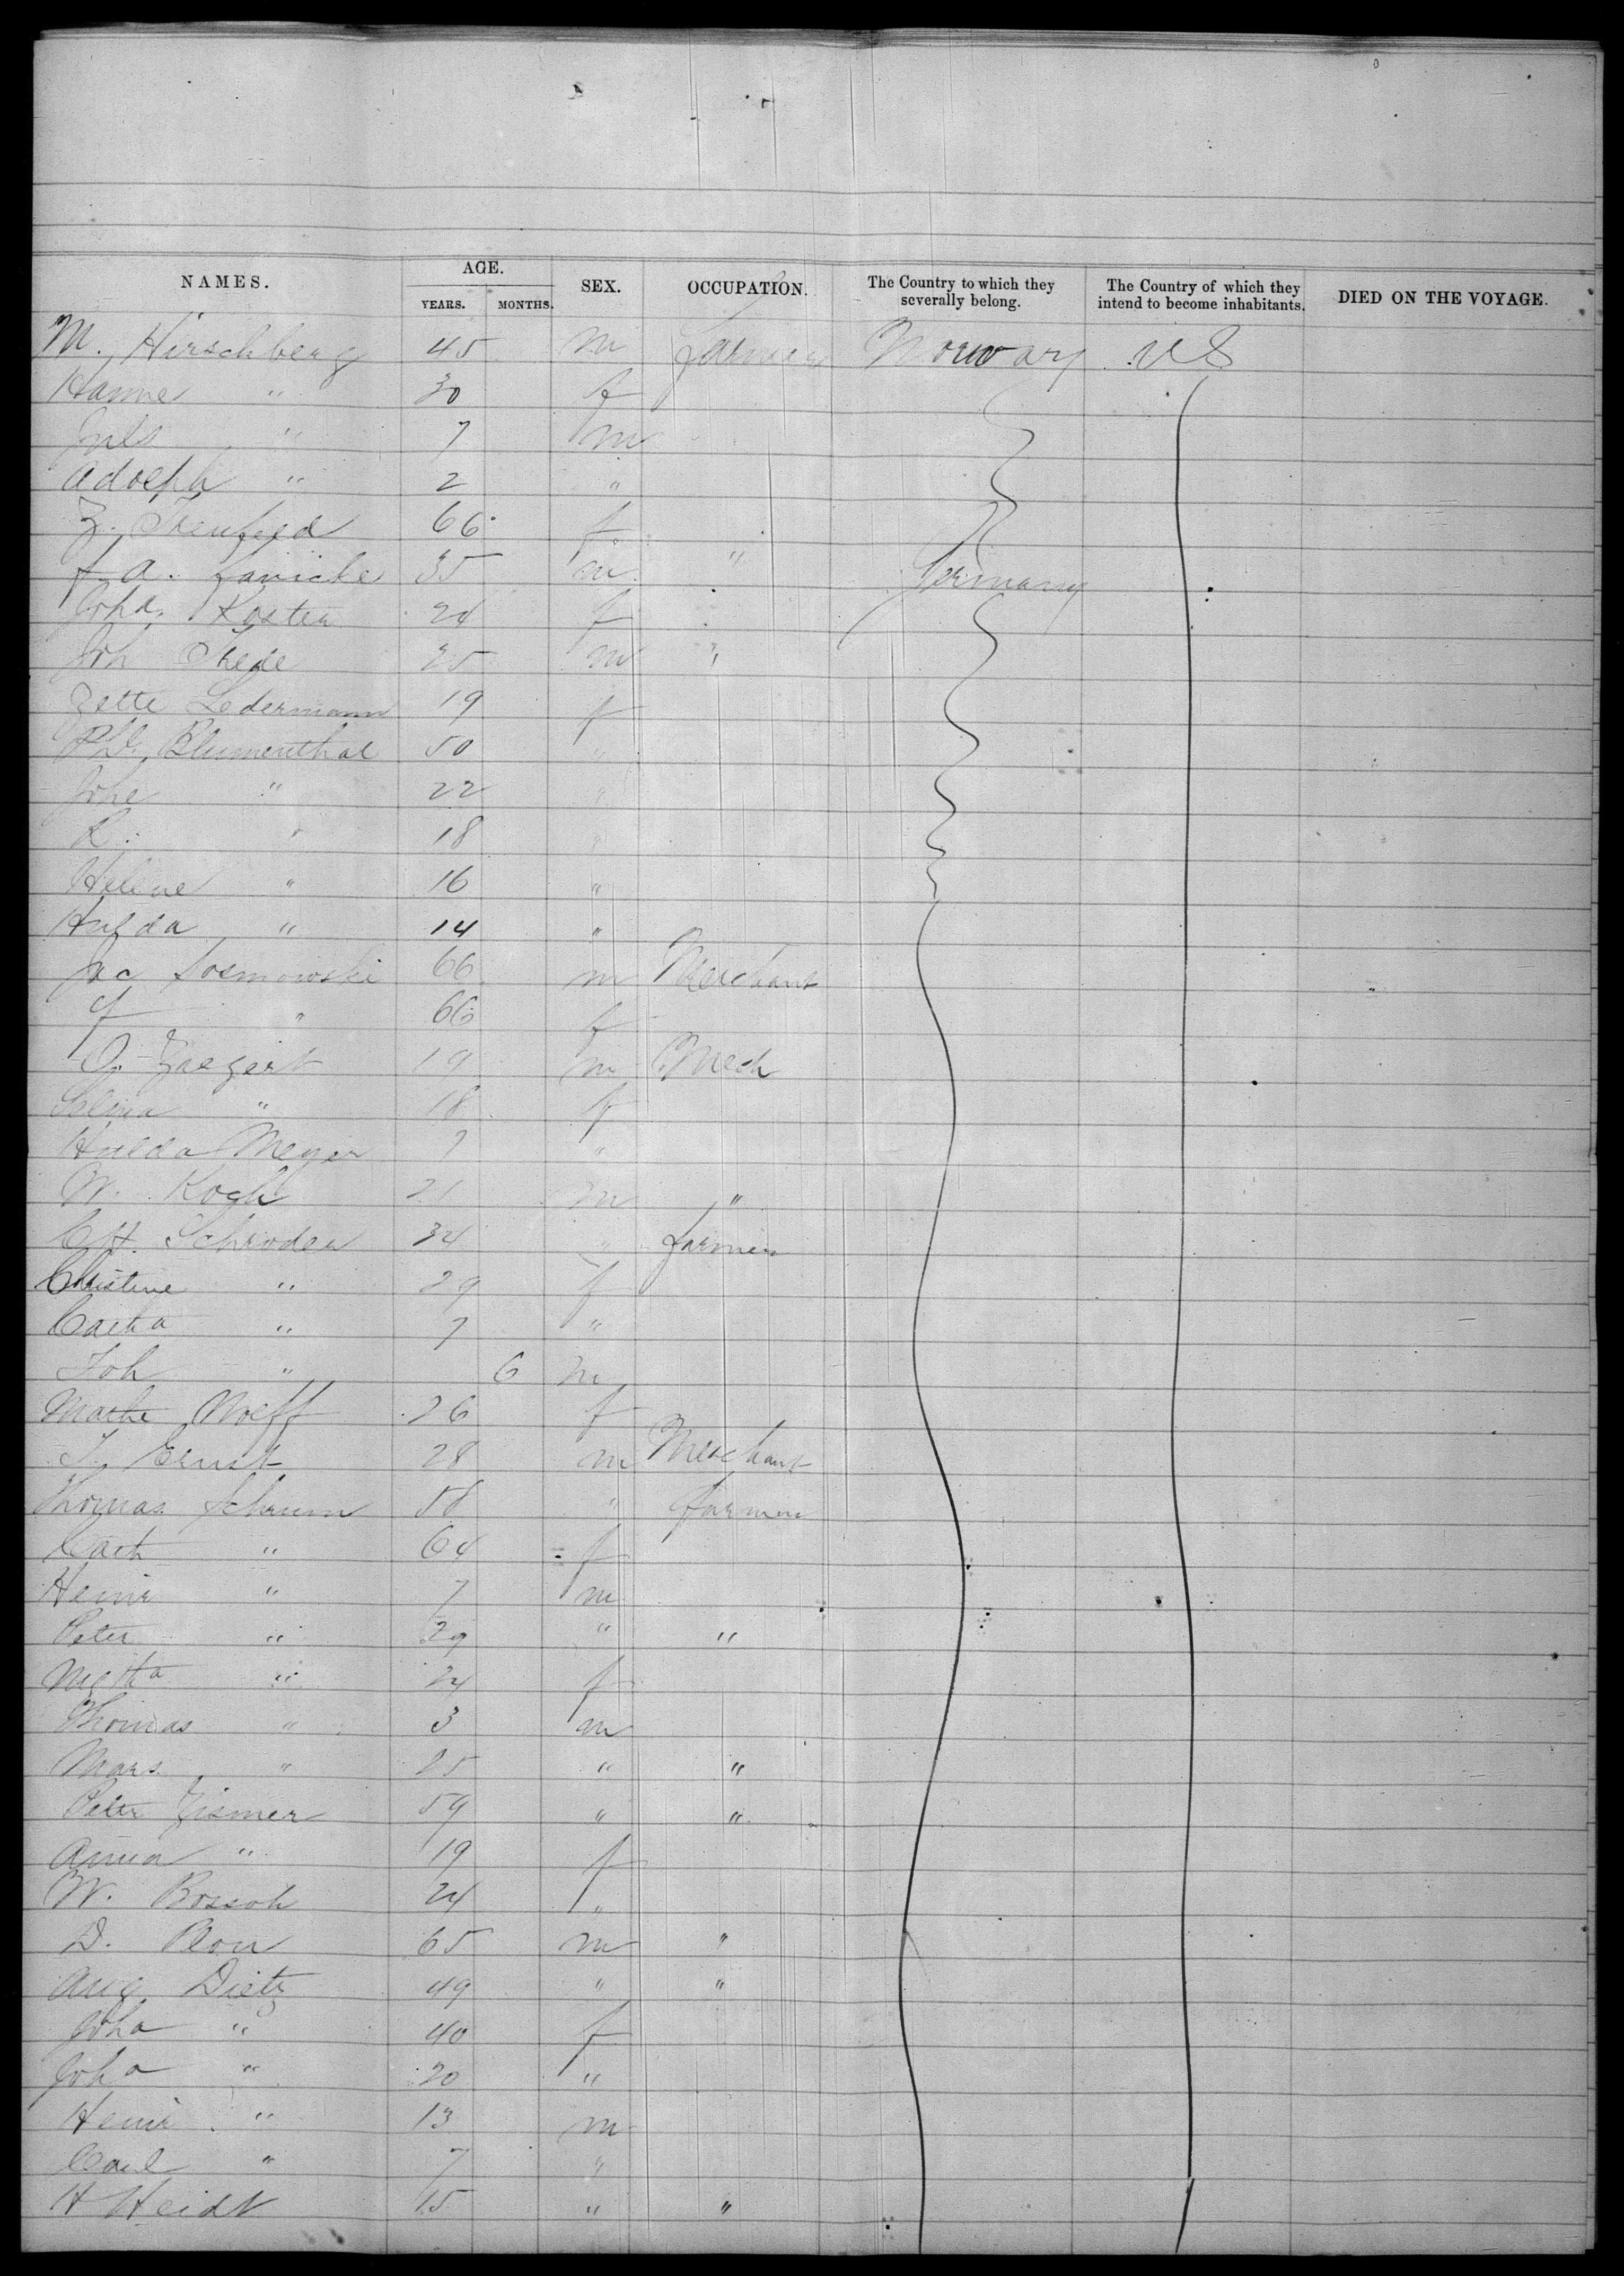 NAMES. AGE. SEX. OCCUPATION. The Country to which they severally belong. The Country of which they intend to become inhabitants. DIED ON THE VOYAGE.
YEARS. MONTHS.
M. Hirschberg 45 m farmer Norway US
Hanne " 30 f
Juls " 7 m
Adolph " 2 "
66 f
F. A. 35 m " Germany
Joha. Koster 24 f
Joh 25 m "
Zette Ledermann 19 f
Blumenthal 50 "
Johe " 22 "
R. " 18 "
Helene " 16 "
Hulda " 14 "
Jac Sosmowski 66 m Merchant
F " 66 f
O. 19 m Mech
Selma " 18 f
Hulda Meyer 7 "
W. Koch 21 m "
C. H. Schroder 34 " farmer
Christine " 29 f
Catha " 7 "
Joh " 6 m
Marthe Wolff 26 f
J. Ernst 28 m Merchant
Thomas Schumm 58 " farmer
Cath " 64 f
Heinr " 7 m
Peter " 29 " "
Metta " 24 f
Thomas " 3 m
Mars " 25 " "
Peter Zismer 59 " "
Anna " 19 f
W. 24 "
D. Plon 65 m "
Aug Dietz 49 " "
Joha " 40 f
Joha " 20 "
Heinr " 13 m
Carl " 7 "
H Heidt 15 " "